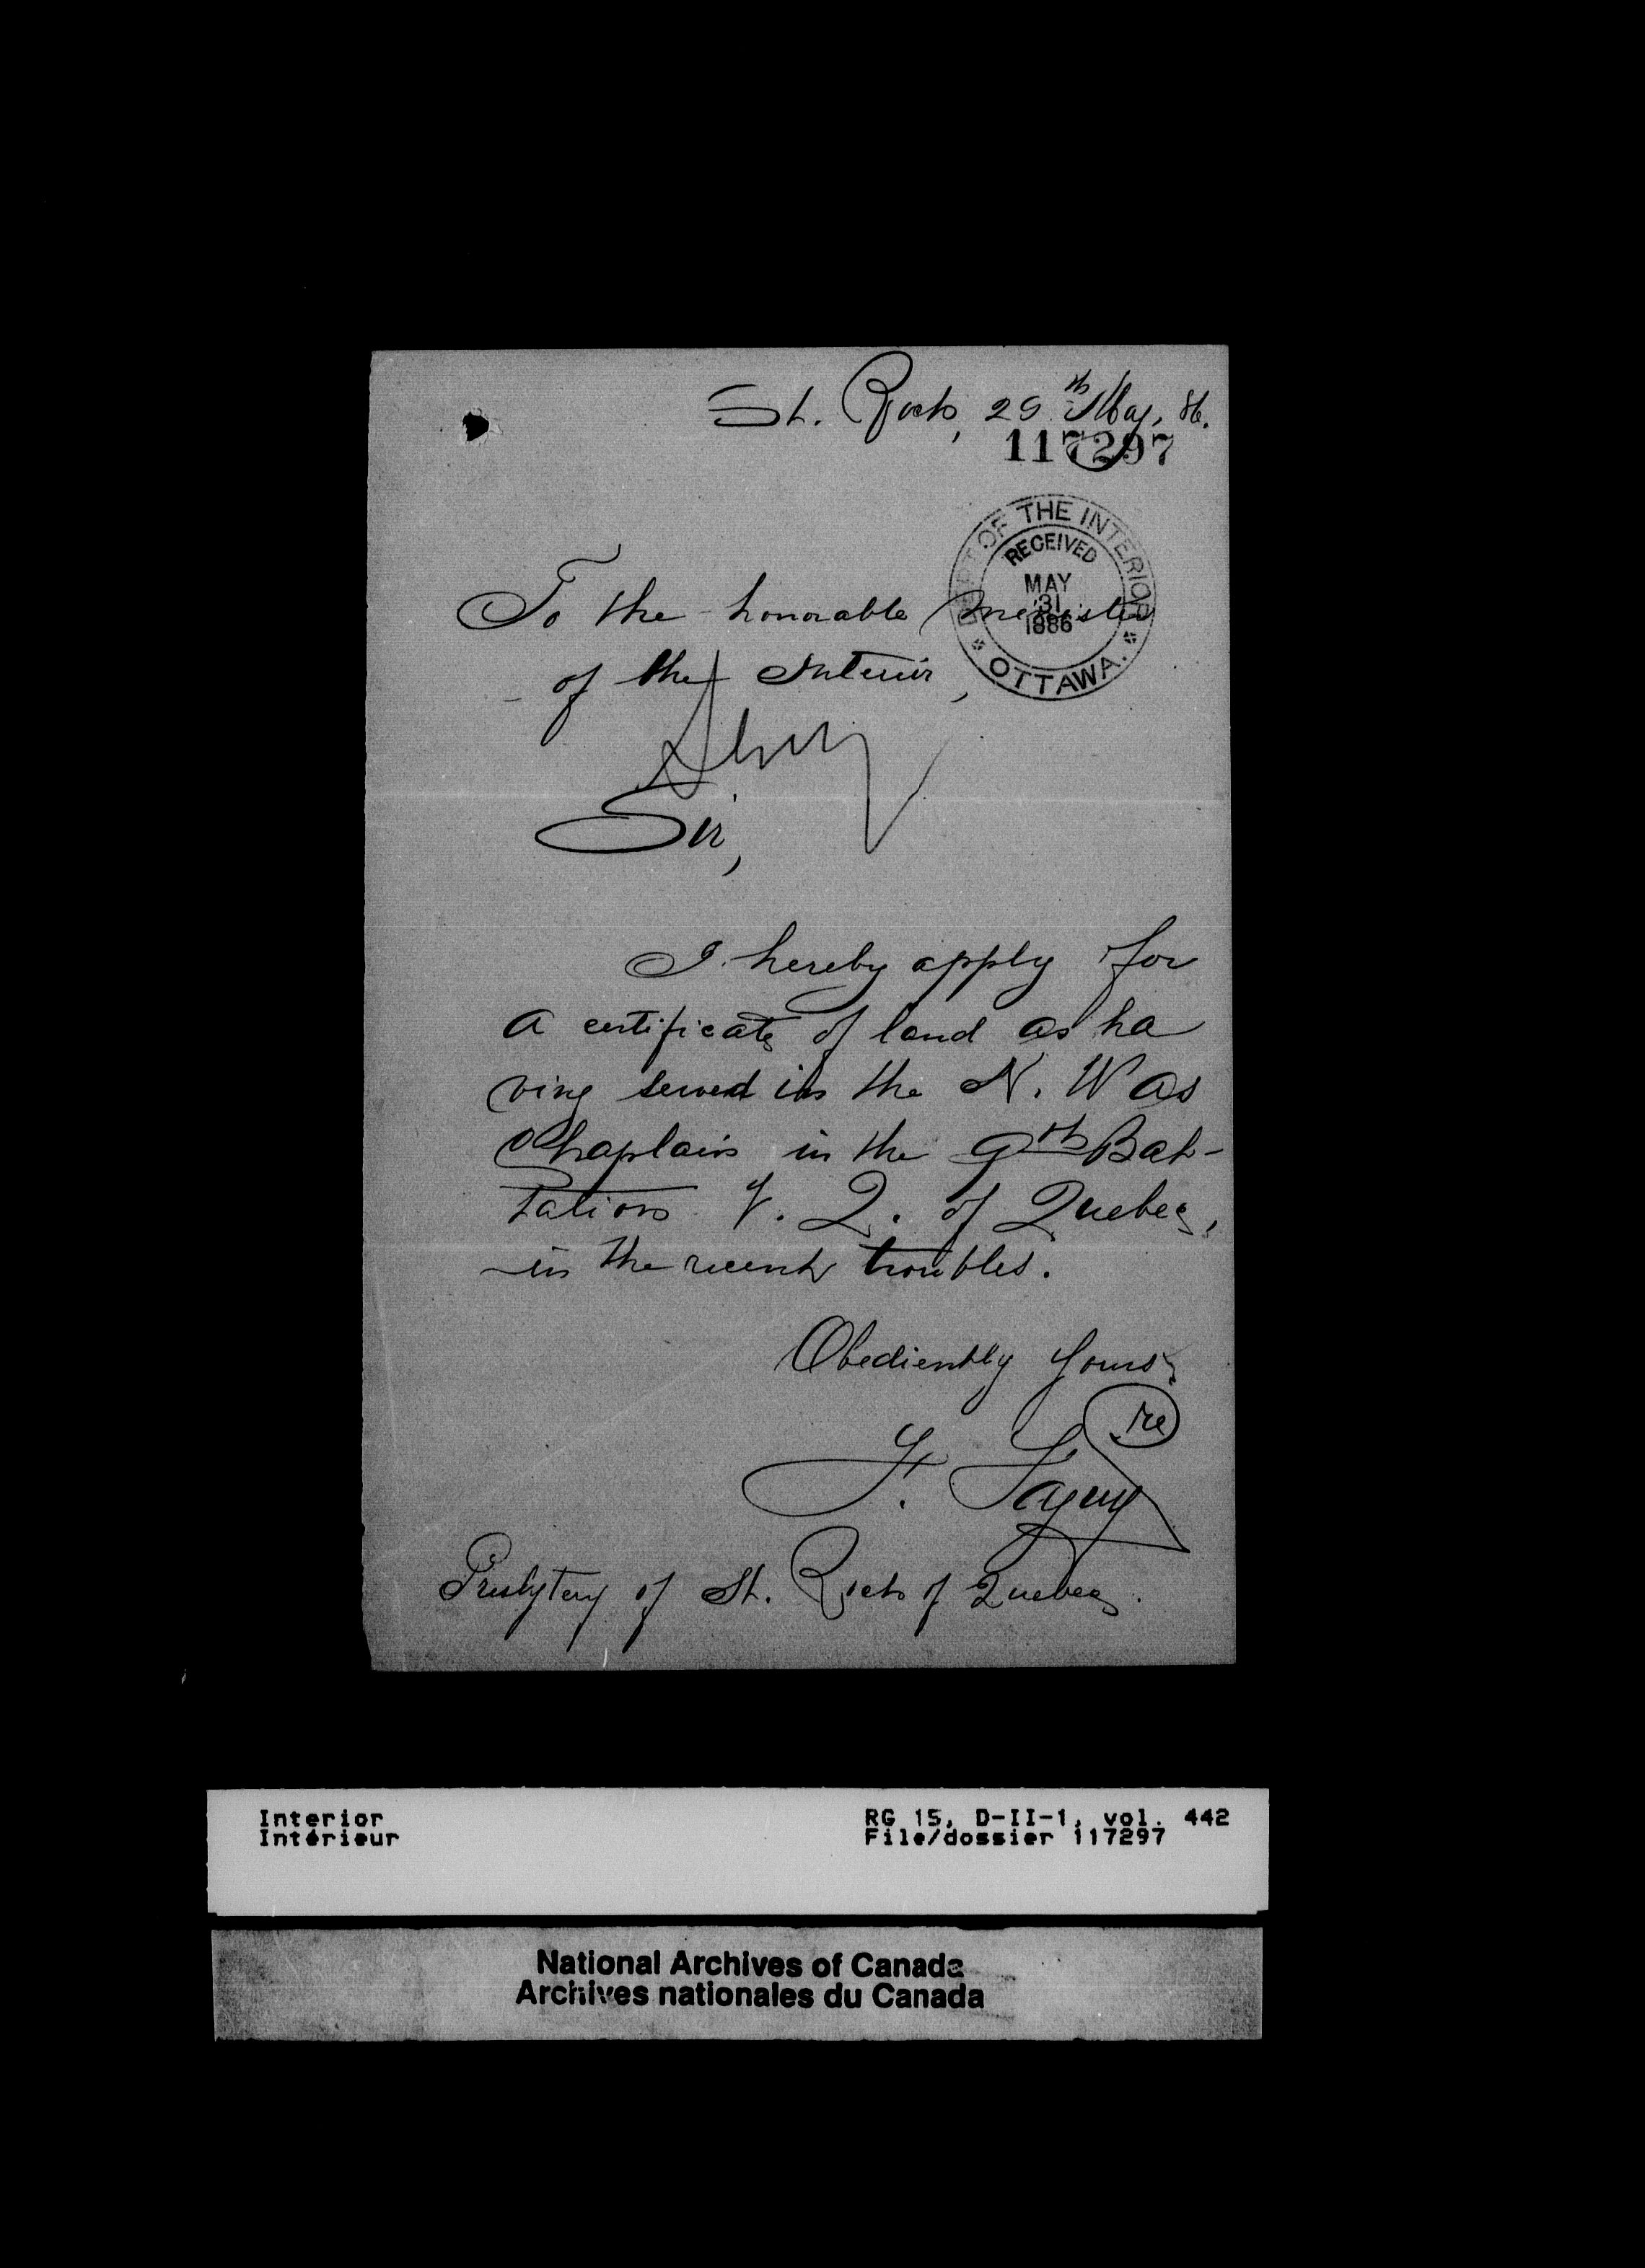 St. Roch, 29th May, 86.
117297
DEPT OF THE INTERIOR
RECEIVED
MAY
31
1886
OTTAWA.
To the honorable Minister
of the Interior,
Sir,
I hereby apply for
a certificate of land as ha
ving served in the N. W as
Chaplain in the 9th Bat-
talion V. Q. of Quebec,
in the recent troubles.
Obediently Yours,
F. Faguy
Presbytery of St. Roch of Quebec.
Interior
Intérieur
RG 15, D-II-1, vol. 442
File/dossier 117297
National Archives of Canada
Archives nationales du Canada